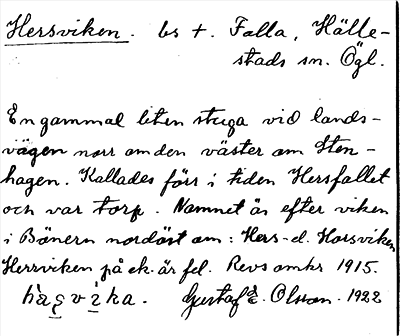 Hersviken. bs t. Falla, Hälle-
stads sn. Ögl.
En gammal liten stuga vid lands-
vägen norr om den väster om Sten-
hagen. Kallades förr i tiden Hersfallet
och var torp. Namnet är efter viken
i Bönern nordöst om: Hers- el. Horsviken
Herrviken på ek. är fel. Revs omkr 1915.
Gustaf E. Olsson. 1922